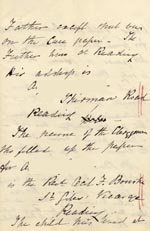 Father except that was
on the Case paper – The
Father lives at Reading
His address is
A.
Thirsman Road
Reading
The name of the Clergyman
who filled up the paper
for A
is the Revd
St Giles Vicarage
Reading
The child has lived at